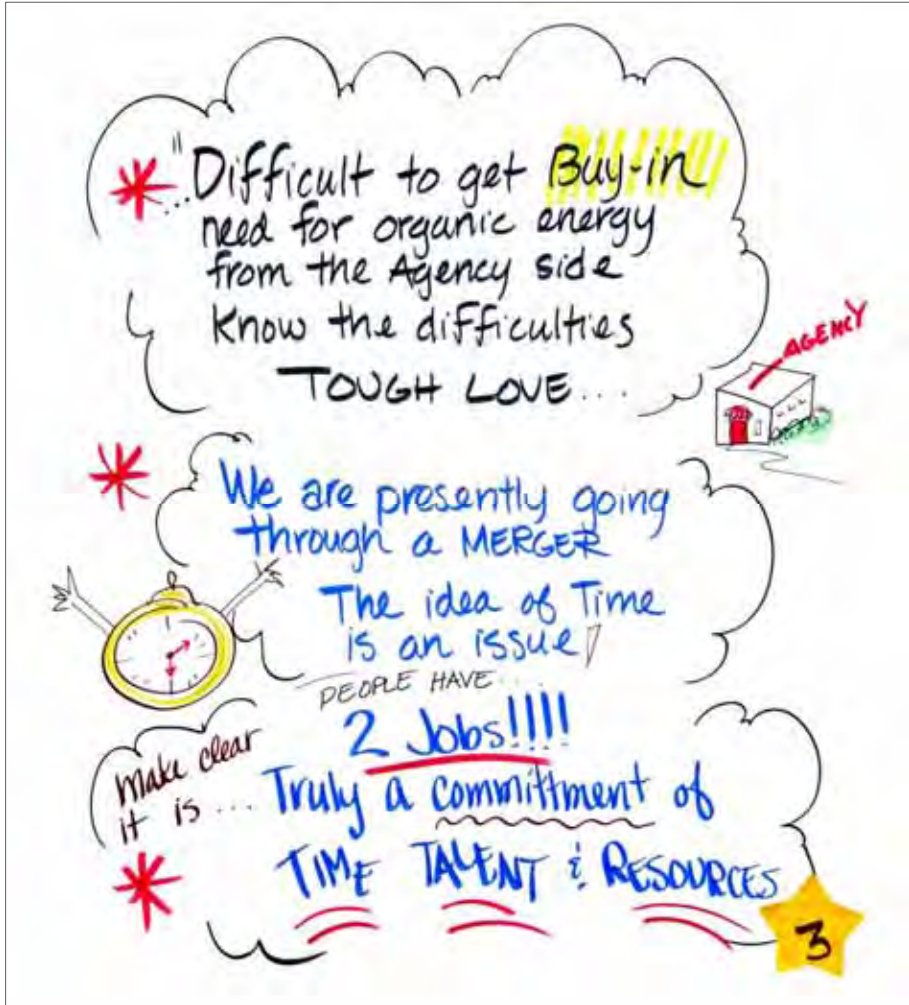 "...Difficult to get Buy-in
need for organic energy
from the Agency side
Know the difficulties
TOUGH LOVE...
AGENCY
We are presently going
through a MERGER
The idea of Time
is an issue!
PEOPLE HAVE...
2 Jobs!!!!
Make clear
it is... Truly a committment of
TIME TALENT & RESOURCES
3